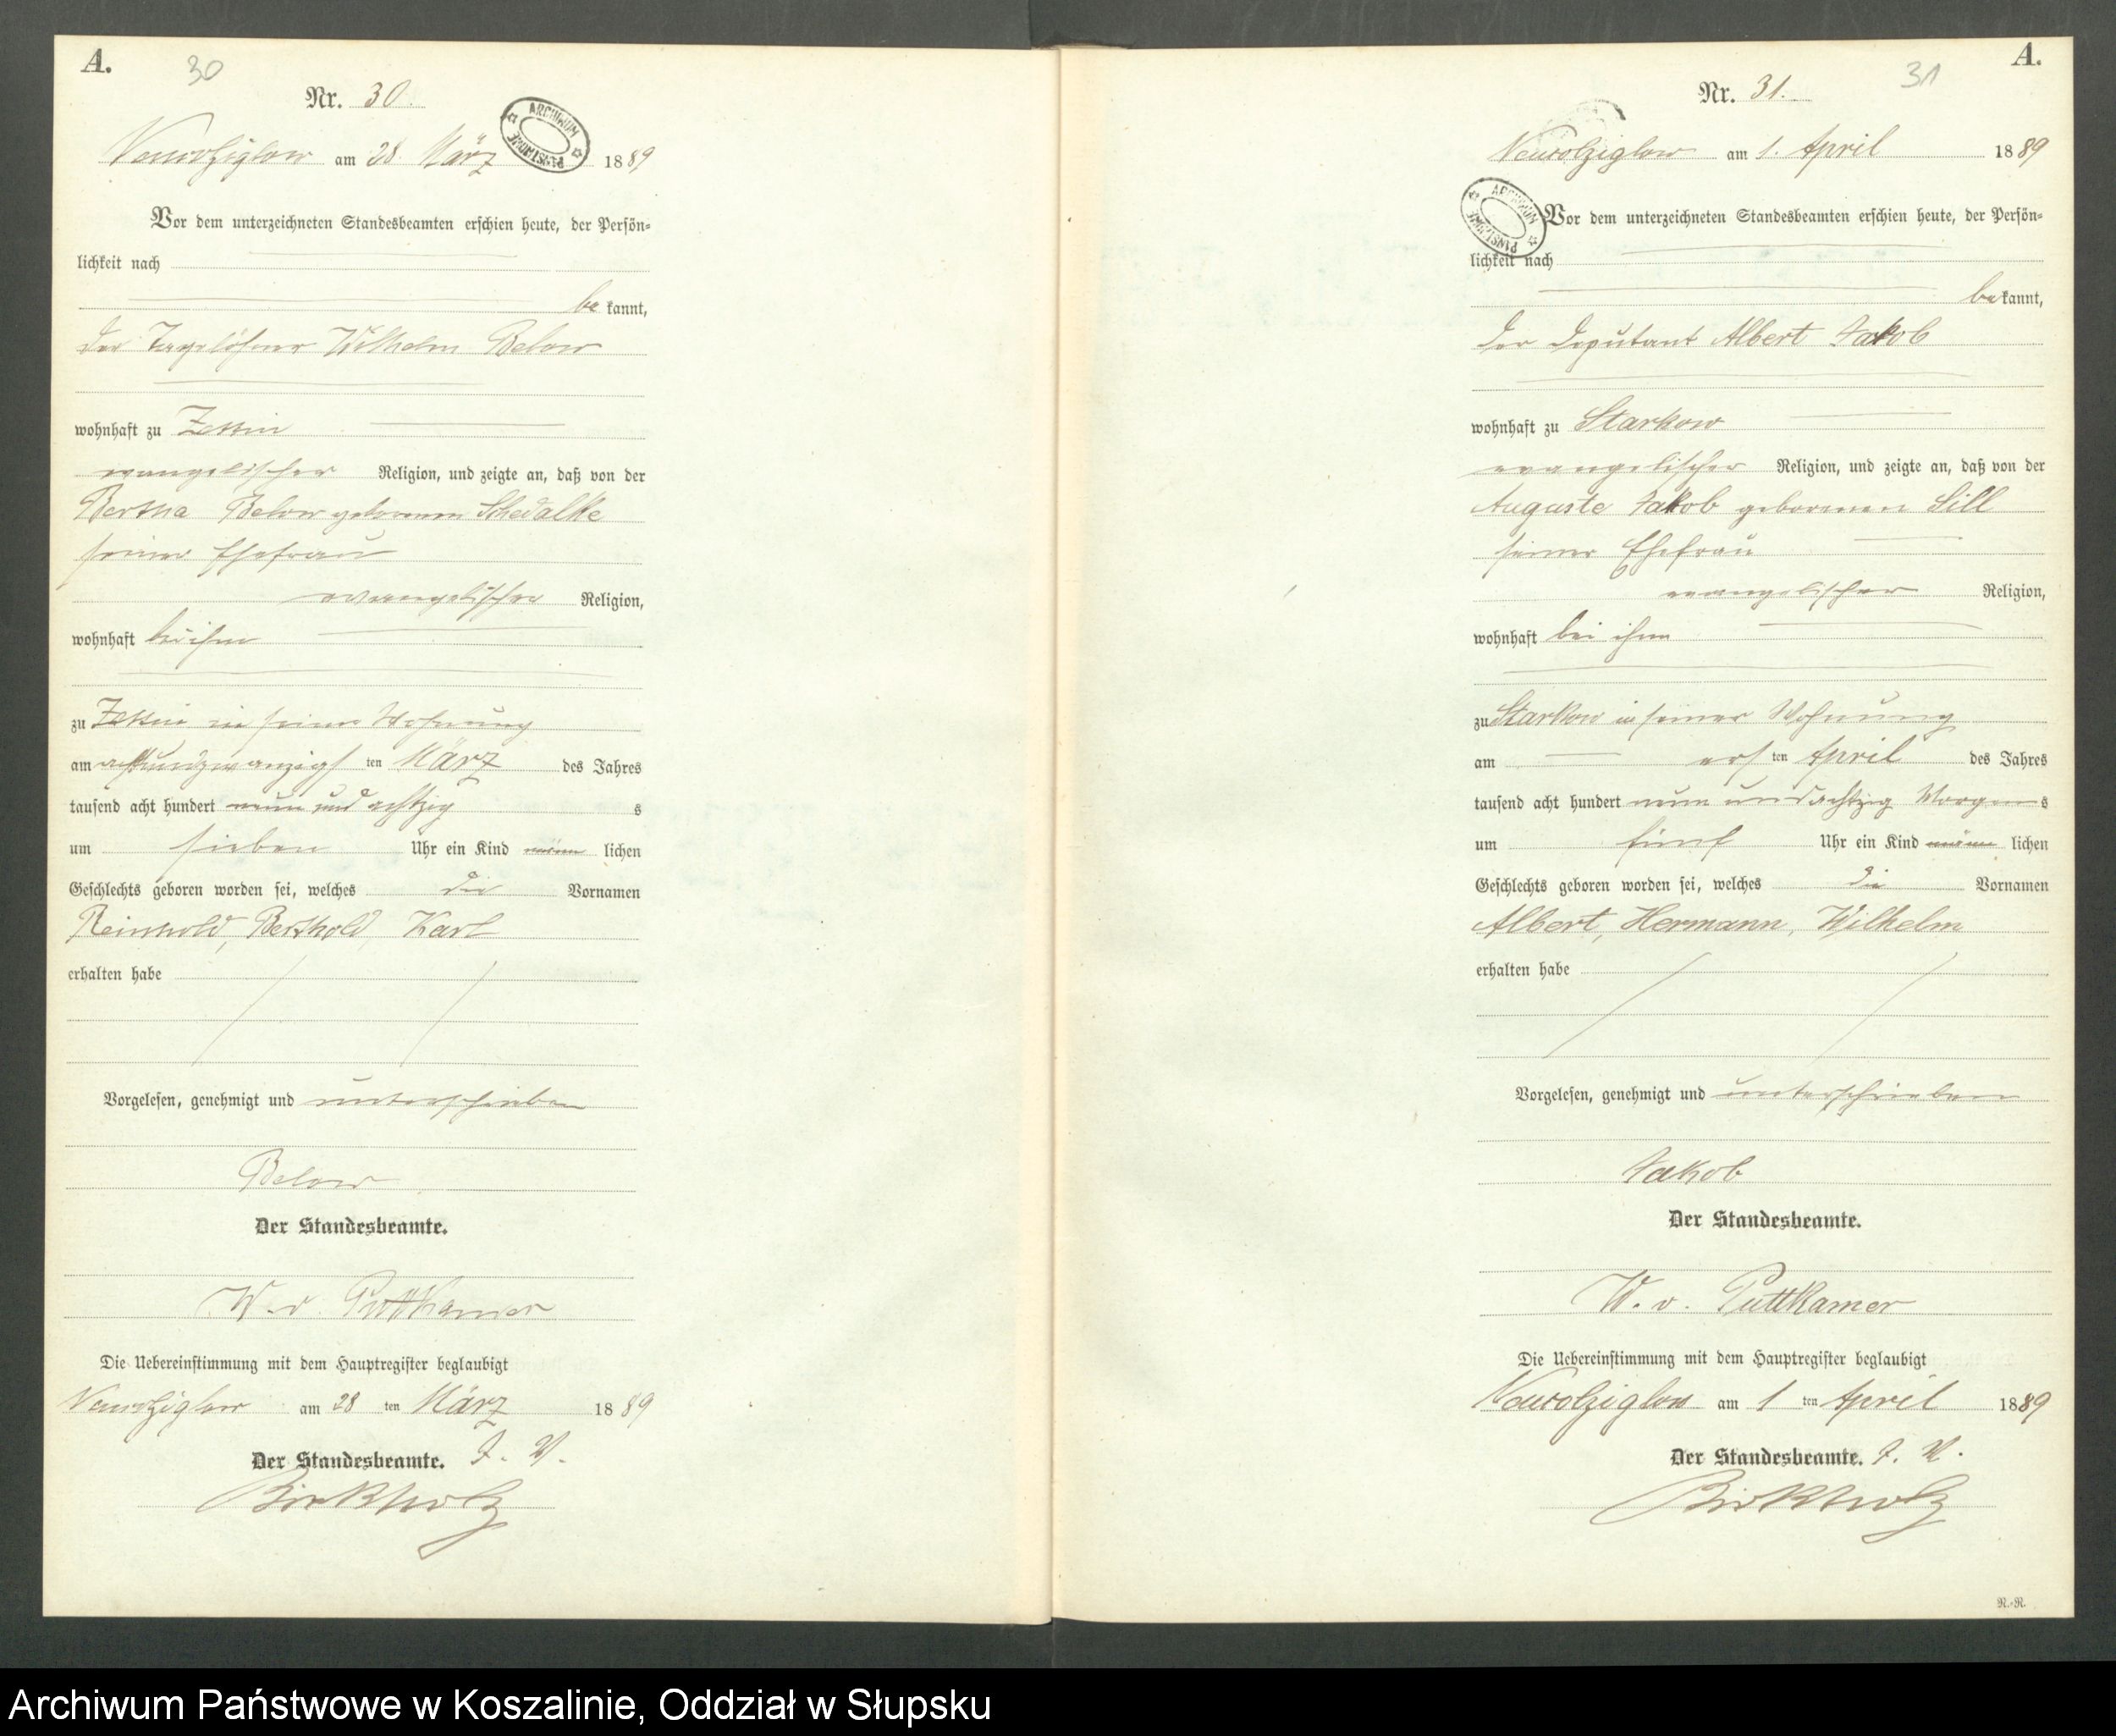 A.
30
Nr. 30.
Neuwolziglow am 28. März 1889
Vor dem unterzeichneten Standesbeamten erschien heute, der Persön-
lichkeit nach
bekannt,
der Tagelöhner Wilhelm Below
wohnhaft zu Zettin
evangelischer Religion, und zeigte an, daß von der
Bertha Below geborenen Schedalke
seiner Ehefrau
evangelischer Religion,
wohnhaft bei ihm
zu Zettin in seiner Wohnung
am achtundzwanzigsten März des Jahres
tausend acht hundert neun und achtzig s
um sieben Uhr ein Kind männlichen
Geschlechts geboren worden sei, welches die Vornamen
Reinhold, Berthold, Karl
erhalten habe
Vorgelesen, genehmigt und unterschrieben
Below
Der Standesbeamte.
W. v. Puttkamer
Die Uebereinstimmung mit dem Hauptregister beglaubigt
Neuwolziglow am 28 ten März 1889
Der Standesbeamte. J. V.
Birkholz
ARCHIWUM PAŃSTWOWE
A.
31
Nr. 31.
Neuwolziglow am 1. April 1889
ARCHIWUM PAŃSTWOWE
Vor dem unterzeichneten Standesbeamten erschien heute, der Persön-
lichkeit nach
bekannt,
der Deputant Albert Jakob
wohnhaft zu Starkow
evangelischer Religion, und zeigte an, daß von der
Auguste Jakob geborenen Sill
seiner Ehefrau
evangelischer Religion,
wohnhaft bei ihm
zu Starkow in seiner Wohnung
am ersten April des Jahres
tausend acht hundert neun und achtzig Morgens
um fünf Uhr ein Kind männlichen
Geschlechts geboren worden sei, welches die Vornamen
Albert, Hermann, Wilhelm
erhalten habe
Vorgelesen, genehmigt und unterschrieben
Jakob
Der Standesbeamte.
W. v. Puttkamer
Die Uebereinstimmung mit dem Hauptregister beglaubigt
Neuwolziglow am 1 ten April 1889
Der Standesbeamte. J. V.
Birkholz
R.-R.
Archiwum Państwowe w Koszalinie, Oddział w Słupsku